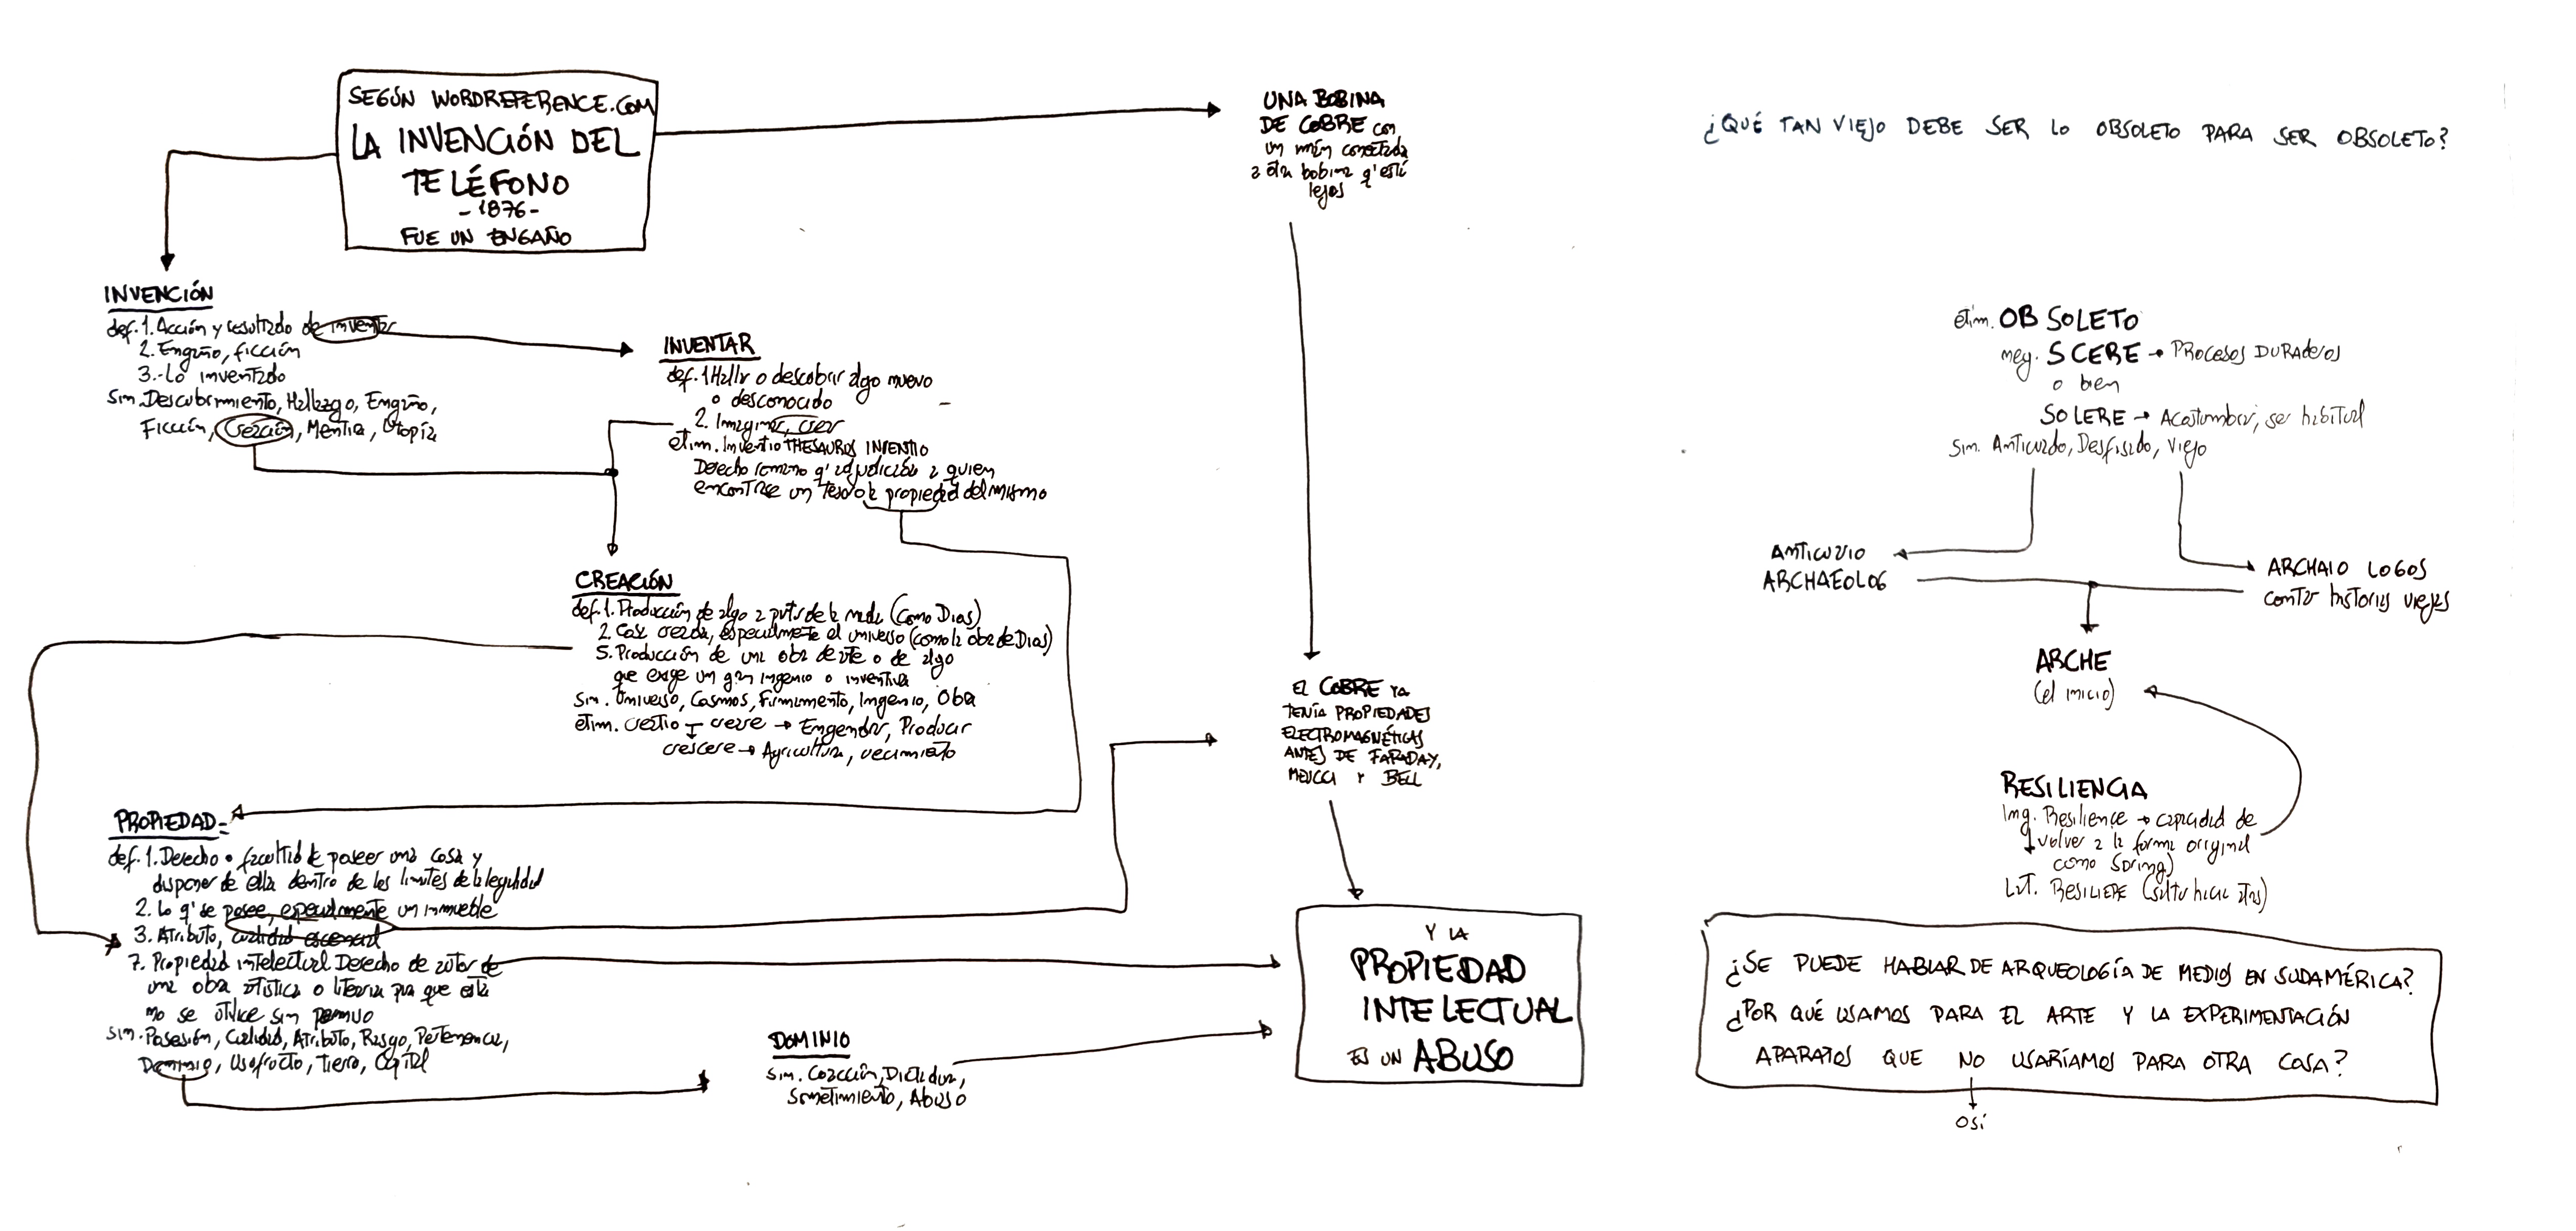 SEGÚN WORDREFERENCE.COM
LA INVENCIÓN DEL
TELÉFONO
-1876-
FUE UN ENGAÑO
INVENCIÓN
def. 1. Acción y resultado de inventar
2. Engaño, ficción
3.- Lo inventado
sin. Descubrimiento, Hallazgo, Engaño,
Ficción, Creación, Mentira, Utopía
INVENTAR
def. 1 Hallar o descobrir algo nuevo
o desconocido
2. Imaginar, crear
etim. Inventio THESAUROS INVENTIO
Derecho romano q' adjudicaba a quien
encontrase un tesoro la propiedad del mismo
CREACIÓN
def. 1. Producción de algo a partir de la nada (como Dios)
2. Cosa creada, especialmente el universo (como la obra de Dios)
5. Producción de una obra de arte o de algo
que exige un gran ingenio o inventiva
sin. Universo, Cosmos, Firmamento, Ingenio, Obra
etim. creatio creare → Engendrar, Producir
crescere → Agricultura, crecimiento
PROPIEDAD
def. 1. Derecho o facultad de poseer una cosa y
disponer de ella dentro de los límites de la legalidad
2. Lo q' se posee, especialmente un inmueble
3. Atributo, cualidad escencial
7. Propiedad intelectual Derecho de autor de
una obra artística o literaria para que esta
no se utilice sin permiso
sin. Posesión, Cualidad, Atributo, Rasgo, Pertenencia,
Dominio, Usufructo, Tierra, Capital
DOMINIO
sin. Coacción, Dictadura,
Sometimiento, Abuso
UNA BOBINA
DE COBRE con
un imán conectada
a otra bobina q' está
lejos
EL COBRE YA
TENÍA PROPIEDADES
ELECTROMAGNÉTICAS
ANTES DE FARADAY,
MEUCCI Y BELL
Y LA
PROPIEDAD
INTELECTUAL
ES UN ABUSO
¿QUÉ TAN VIEJO DEBE SER LO OBSOLETO PARA SER OBSOLETO?
etim. OB SOLETO
neg. SCERE → PROCESOS DURADEROS
o bien
SOLERE → Acostumbrar, ser habitual
sin. Anticuado, Desfasado, Viejo
ANTICUARIO
ARCHAEOLOG
ARCHAIO LOGOS
contar historias viejas
ARCHE
(el inicio)
RESILIENCIA
Ing. Resilience → capacidad de
volver a la forma original
como Spring)
Lat. RESILIERE (saltar hacia atrás)
¿SE PUEDE HABLAR DE ARQUEOLOGÍA DE MEDIOS EN SUDAMÉRICA?
¿POR QUÉ USAMOS PARA EL ARTE Y LA EXPERIMENTACIÓN
APARATOS QUE NO USARÍAMOS PARA OTRA COSA?
O SÍ